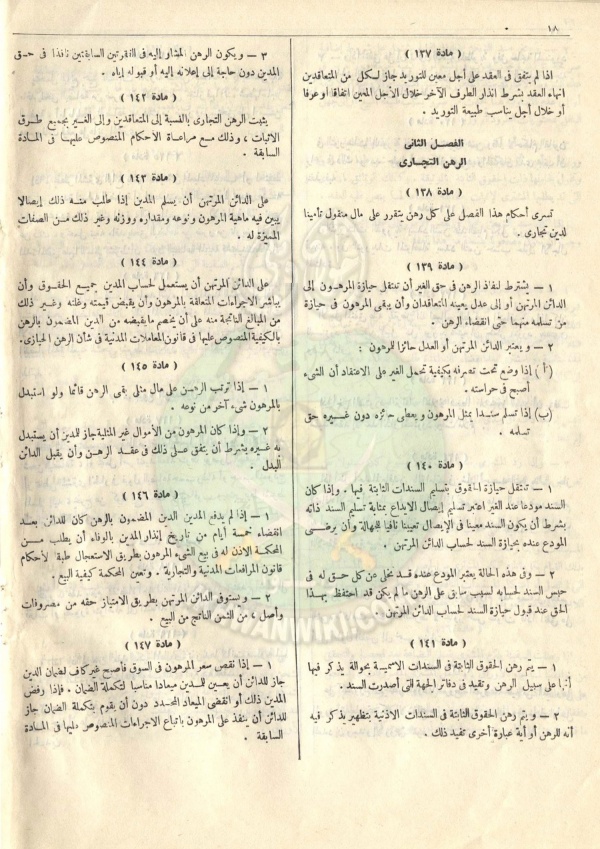 ١٨
( مادة ١٣٧ )
اذا لم يتفق فى العقد على أجل معين للتوريد جاز لسكل من المتعاقدين
انهاء العقد بشرط انذار الطرف الآخر خلال الأجل المعين اتفاقا او عرفا
أو خلال أجل يناسب طبيعة التوريد .
الفصل الثانى
الرهن التجارى
( مادة ١٣٨ )
تسرى أحكام هذا الفصل على كل رهن يتقرر على مال منقول تأمينا
لدين تجارى .
( مادة ١٣٩ )
١ – يشترط لنفاذ الرهن فى حق الغير أن تنتقل حيازة المرهون الى
الدائن المرتهن أو الى عدل يعينه المتعاقدان وأن يبقى المرهون فى حيازة
من تسلمه منهما حتى انقضاء الرهن .
٢ – و يعتبر الدائن المرتهن أو العدل حائزا للمرهون :
( أ ) إذا وضع تحت تصرفه بكيفية تحمل الغير على الاعتقاد أن الشىء
أصبح فى حراسته .
(ب) إذا تسلم سندا يمثل المرهون و يعطى حائزه دون غيره حق
تسلمه .
( مادة ١٤٠ )
١ – تنتقل حيازة الحقوق بتسليم السندات الثابتة فيها . وإذا كان
السند مودعا عند الغير اعتبر تسليم إيصال الايداع بمثابة تسليم السند ذاته
بشرط أن يكون السند معينا فى الإيصال تعيينا نافيا للجهالة وأن يرضى
المودع عنده بحيازة السند لحساب الدائن المرتهن .
٢ – وفى هذه الحالة يعتبر المودع عنده قد تخلى عن كل حق له فى
حبس السند لحسابه لسبب سابق على الرهن ما لم يكن قد احتفظ بهذا
الحق عند قبول حيازة السند لحساب الدائن المرتهن
( مادة ١٤١ )
١ – يتم رهن الحقوق الثابتة فى السندات الاسمية بحوالة يذكر فيها
أنها على سبيل الرهن وتقيد فى دفاتر الجهة التى أصدرت السند .
٢ – و يتم رهن الحقوق الثابتة فى السندات الاذنية بتظهير يذكر فيه
أنه للرهن أو أية عبارة أخرى تفيد ذلك .
٣ – ويكون الرهن المشار إليه فى الفقرتين السابقتين نافذا فى حق
المدين دون حاجة إلى إعلانه إليه أو قبوله إياه .
( مادة ١٤٢ )
يثبت الرهن التجارى بالنسبة إلى المتعاقدين وإلى الغير بجميع طرق
الاثبات ، وذلك مع مراعاة الاحكام المنصوص عليها فى المادة
السابقة .
( مادة ١٤٣ )
على الدائن المرتهن أن يسلم المدين إذا طلب منه ذلك إيصالا
يبين فيه ماهية المرهون ونوعه ومقداره ووزنه وغير ذلك من الصفات
المميزة له .
( مادة ١٤٤ )
على الدائن المرتهن أن يستعمل لحساب المدين جميع الحقوق وأن
يباشر الاجراءات المتعلقة بالمرهون وأن يقبض قيمته وغلته وغير ذلك
من المبالغ الناتجة منه على أن يخصم ما يقبضه من الدين المضمون بالرهن
بالكيفية المنصوص عليها فى قانون المعاملات المدنية فى شأن الرهن الحيازى.
( مادة ١٤٥ )
١ – إذا ترتب الرهن على مال مثلى بقى الرهن قائما ولو استبدل
بالمرهون شىء آخر من نوعه .
٢ – وإذا كان المرهون من الأموال غير المثلية جاز للمدين أن يستبدل
به غيره بشرط أن يتفق على ذلك فى عقد الرهن وأن يقبل الدائن
البدل .
( مادة ١٤٦ )
١ – إذا لم يدفع المدين الدين المضمون بالرهن كان للدائن بعد
انقضاء خمسة أيام من تاريخ إنذار المدين بالوفاء أن يطلب من
المحكمة الاذن له فى بيع الشىء المرهون بطريق الاستعجال طبقا لأحكام
قانون المرافعات المدنية والتجارية . وتعين المحكمة كيفية البيع .
٢ – و يستوفى الدائن المرتهن بطريق الامتياز حقه من مصروفات
وأصل ، من الثمن الناتج من البيع .
( مادة ١٤٧ )
١ – إذا نقص سعر المرهون فى السوق فأصبح غير كاف لضمان الدين
جاز للدائن أن يعين للمدين ميعادا مناسبا لتكملة الضمان . فإذا رفض
المدين ذلك أو انقضى الميعاد المحدد دون أن يقوم بتكملة الضمان جاز
للدائن أن ينفذ على المرهون باتباع الاجراءات المنصوص عليها فى المادة
السابقة .